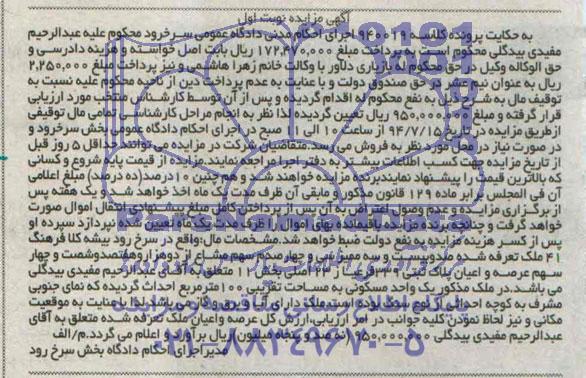 آگهی مزایده نوبت اول
به حکایت پرونده کلاسه 940019 اجرای احکام مدنی دادگاه عمومی سرخرود محکوم علیه عبدالرحیم
مفیدی بیدگلی محکوم است به پرداخت مبلغ 172,470,000 ریال بابت اصل خواسته و هزینه دادرسی و
حق الوکاله وکیل در حق محکوم له بازیاری دلاور با وکالت خانم زهرا هاشمی و نیز پرداخت مبلغ 2,250,000
ریال به عنوان نیم عشر در حق صندوق دولت و با عنایت به عدم پرداخت دین از ناحیه محکوم علیه نسبت به
توقیف مال به شرح ذیل به نفع محکوم له اقدام گردیده و پس از آن توسط کارشناس منتخب مورد ارزیابی
قرار گرفته و مبلغ 950,000,000 ریال تعیین گردیده لذا نظر به اتمام مراحل کارشناسی تمامی مال توقیفی
ازطریق مزایده در تاریخ 94/7/15 از ساعت 10 الی 11 صبح در اجرای احکام دادگاه عمومی بخش سرخرود و
در صورت نیاز در محل مورد نظر به فروش می رسد. متقاضیان شرکت در مزایده می توانند حداقل 5 روز قبل
از تاریخ مزایده جهت کسب اطلاعات بیشتر به دفتر اجرا مراجعه نمایند.مزایده از قیمت پایه شروع و کسانی
که بالاترین قیمت را پیشنهاد نمایند برنده مزایده خواهند شد و هم چنین 10درصد(ده درصد) مبلغ اعلامی
آن فی المجلس برابر ماده 129 قانون مذکور و مابقی آن ظرف مدت یک ماه اخذ خواهد شد و یک هفته پس
از برگزاری مزایده و عدم وصول اعتراض به آن پس از پرداختن کامل مبلغ پیشنهادی انتقال اموال صورت
خواهد گرفت و چنانچه برنده مزایده باقیمانده بهای اموال را ظرف مدت یک ماه تعیین شده نپردازد سپرده او
پس از کسر هزینه مزایده به نفع دولت ضبط خواهد شد.مشخصات مال:واقع در سرخ رود بیشه کلا فرهنگ
41 ملک تعرفه شده دویست و سه ممیز سی و چهار صدم سهم مشاع از دو هزار و هفتصد و شصت و چهار
سهم عرصه و اعیان پلاک ثبتی فرعی از اصلی بخش 12 متعلق به آقای عبدالرحیم مفیدی بیدگلی
می باشد.در ملک مذکور یک واحد مسکونی به مساحت تقریبی 100مترمربع احداث گردیده که نمای جنوبی
مشرف به کوچه احداثی از نوع سنگ بوده است ملک دارای آب و برق و گاز می باشد لذا با عنایت به موقعیت
مکانی و نیز لحاظ نمودن کلیه جوانب در امر ارزیابی،ارزش کل عرصه واعیان ملک تعرفه شده متعلق به آقای
عبدالرحیم مفیدی بیدگلی 950,000,000 (نهصد و پنجاه میلیون)ریال برآورد و اعلام می گردد.م/الف
مدیراجرای احکام دادگاه بخش سرخ رود
021-88349670-5